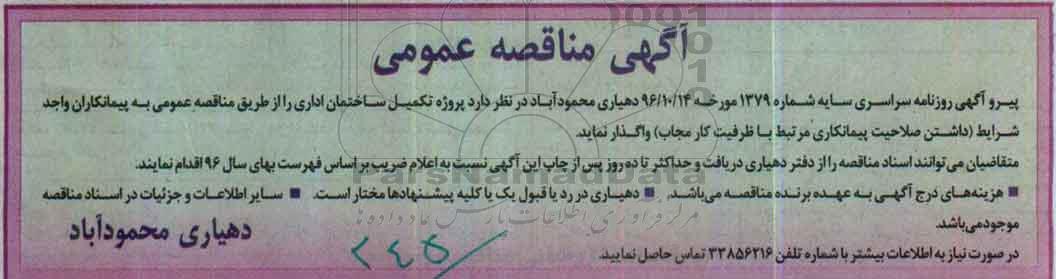 آگهی مناقصه عمومی
پیرو آگهی روزنامه سراسری سایه شماره ۱۳۷۹ مورخه ۹۶/۱۰/۱۴ دهیاری محمودآباد در نظر دارد پروژه تکمیل ساختمان اداری را از طریق مناقصه عمومی به پیمانکاران واجد
شرایط (داشتن صلاحیت پیمانکاری مرتبط با ظرفیت کار مجاب) واگذار نماید.
متقاضیان می‌توانند اسناد مناقصه را از دفتر دهیاری دریافت و حداکثر تا ده روز پس از چاپ این آگهی نسبت به اعلام ضریب بر اساس فهرست بهای سال ۹۶ اقدام نمایند.
■ هزینه‌های درج آگهی به عهده برنده مناقصه می‌باشد. ■ دهیاری در رد یا قبول یک یا کلیه پیشنهادها مختار است. ■ سایر اطلاعات و جزئیات در اسناد مناقصه
موجود می‌باشد.
در صورت نیاز به اطلاعات بیشتر با شماره تلفن ۳۳۸۵۶۲۱۶ تماس حاصل نمایید.
دهیاری محمودآباد
۲۴۵
ParsNamadData
مرکز فرآوری اطلاعات پارس نماد داده ها